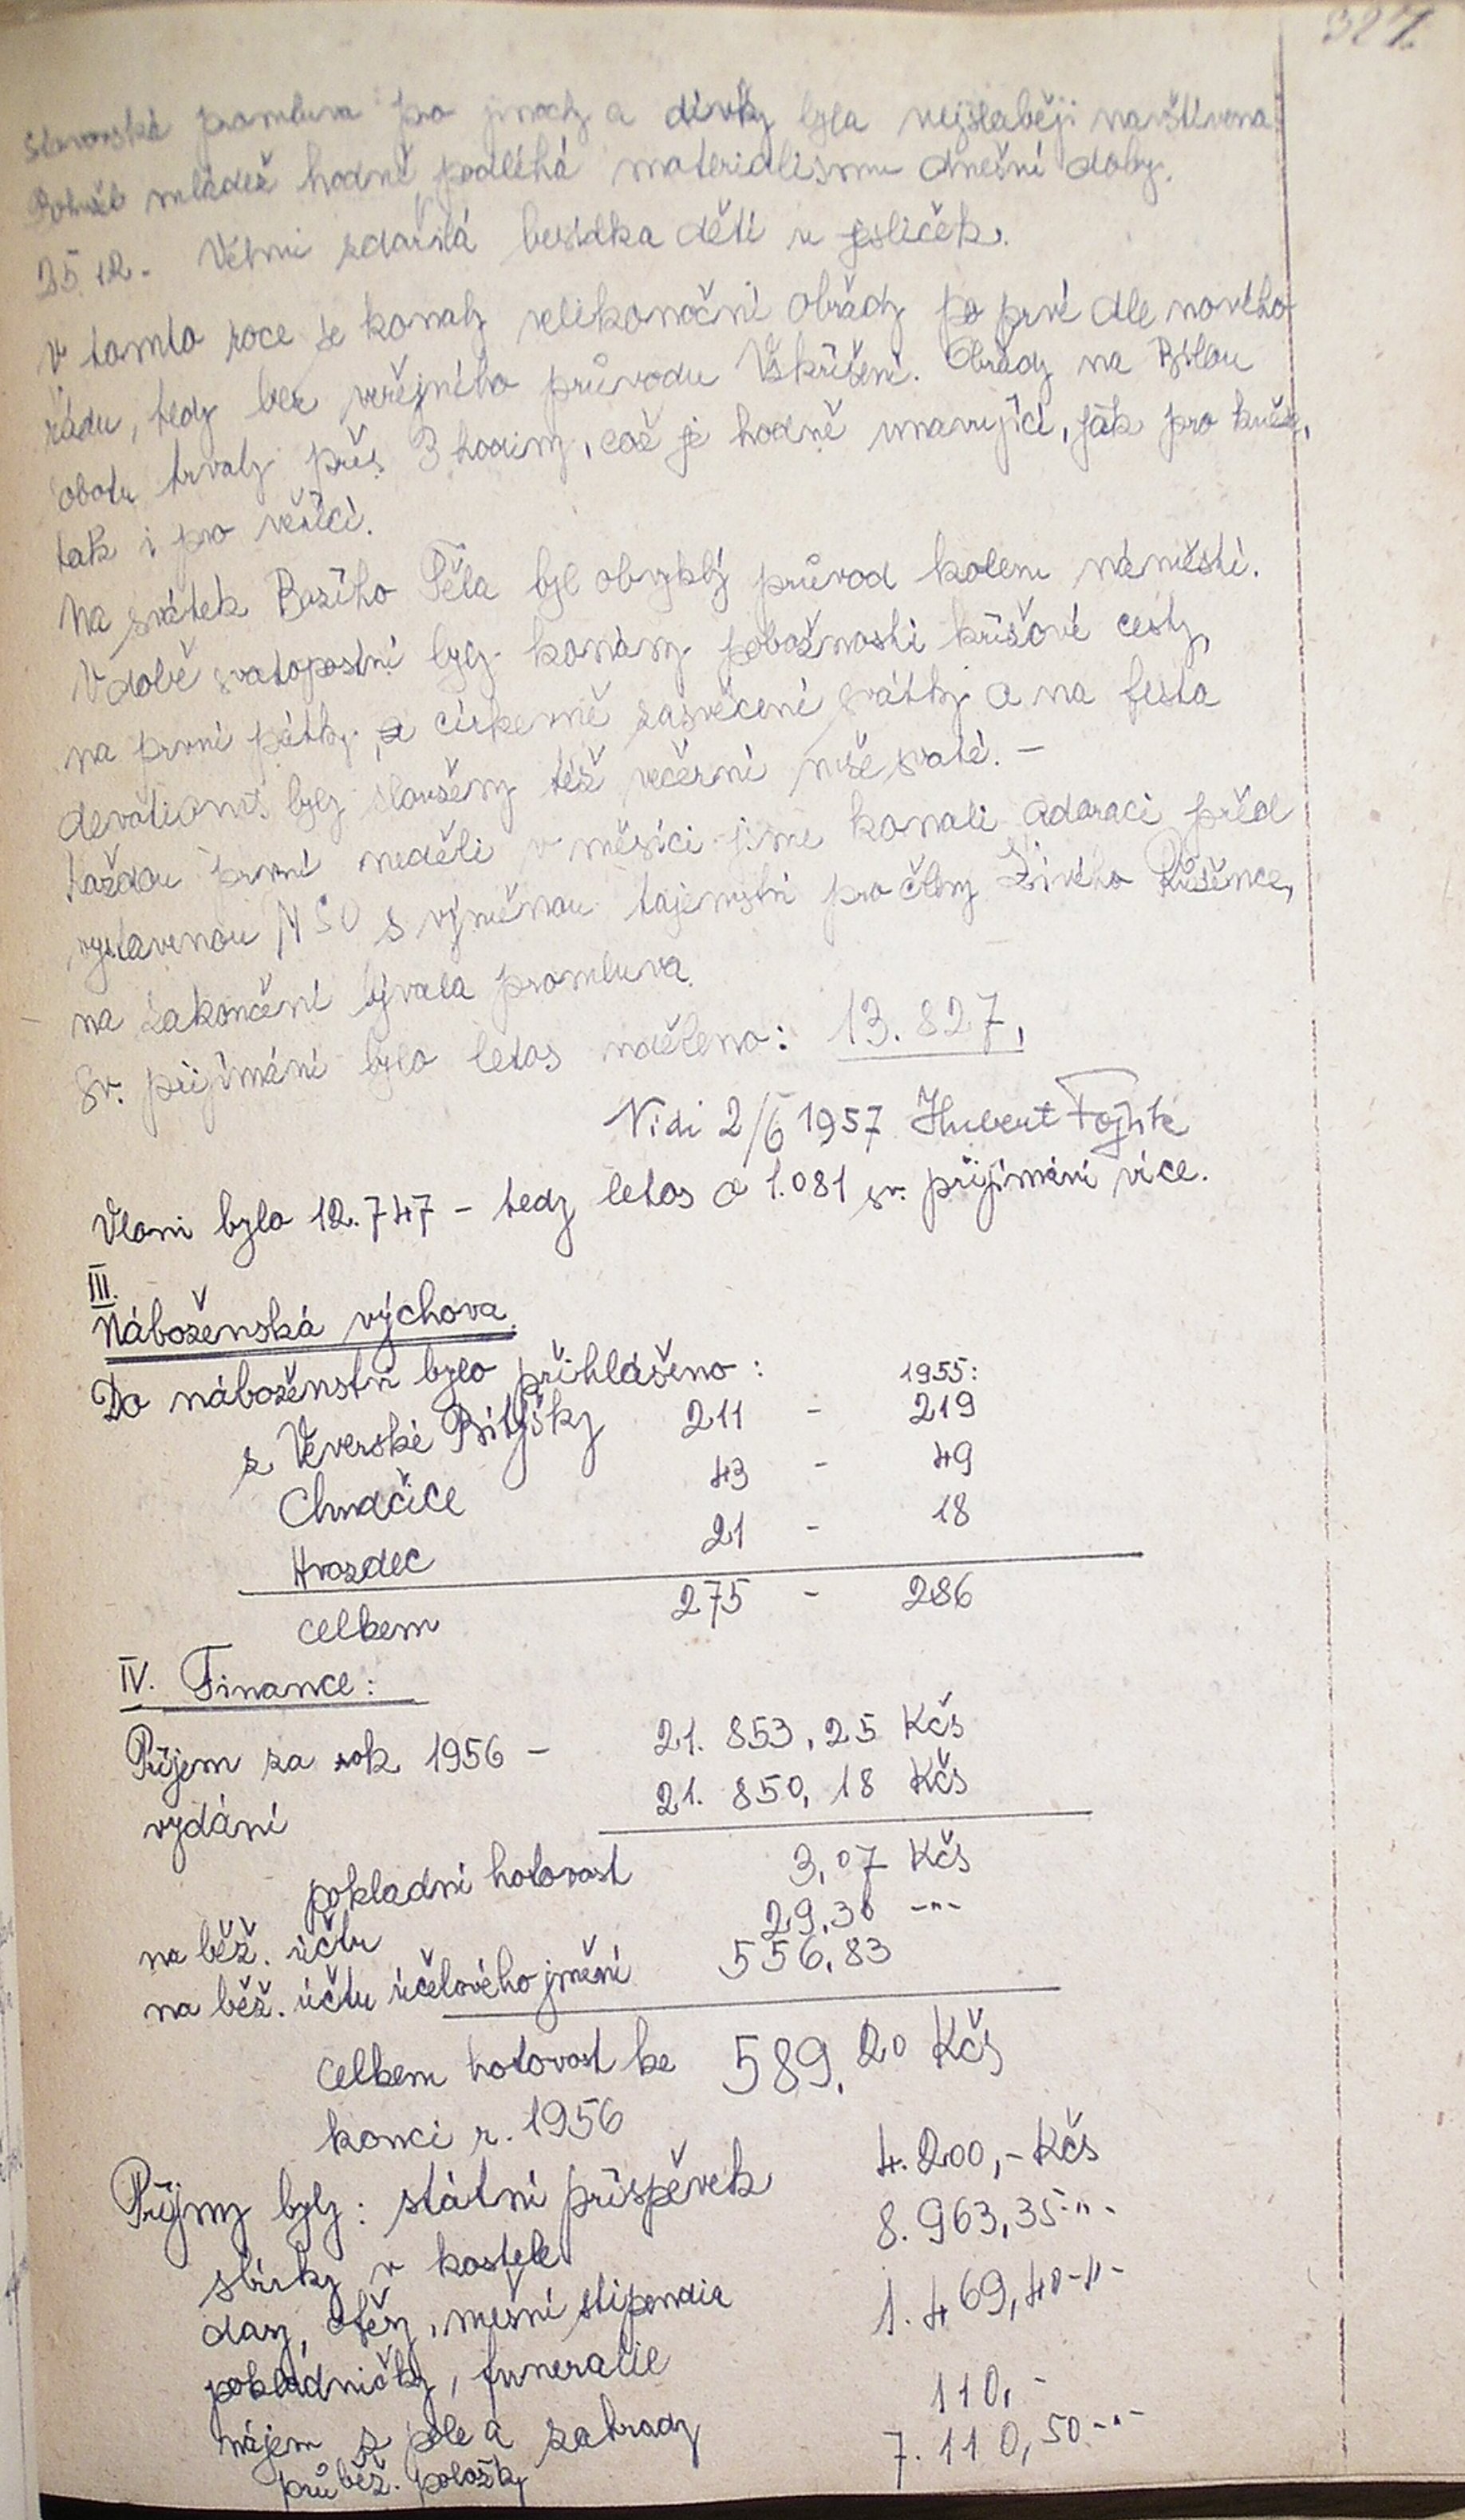 327.
stavovská promluva pro jinochy a dívky byla nejslaběji navštívena.
mládež hodně podléhá materialismu dnešní doby.
25. 12. - Velmi zdařilá besídka dětí u jesliček.
V tomto roce se konaly velikonoční obřady po prvé dle nového
řádu, tedy bez veřejného průvodu Vzkříšení. Obřady na Bílou
sobotu trvaly přes 3 hodiny, což je hodně unavující, jak pro kněze,
tak i pro věřící.
Na svátek Božího Těla byl obvyklý průvod kolem náměstí.
V době svatopostní byly konány pobožnosti křížové cesty,
na první pátky, a církevně zasvěcené svátky a na festa
devotionis byly slouženy též večerní mše svaté. -
Každou první neděli v měsíci jsme konali adoraci před
vystavenou NSV s výměnou tajemství pro členy Živého Růžence,
na zakončení bývala promluva.
Sv. přijímání bylo letos uděleno: 13.827,
Vidi 2/6 1957 Hubert Fojtík
Vloni bylo 12.747 - tedy letos o 1.081 sv. přijímání více.
III.
Náboženská výchova.
Do náboženství bylo přihlášeno: 1955:
z Veverské Bítýšky 211 - 219
Chudčice 43 - 49
Hvozdec 21 - 18
celkem 275 - 286
IV. Finance:
Příjem za rok 1956 - 21.853,25 Kčs
vydání 21.850,18 Kčs
pokladní hotovost 3,07 Kčs
na běž. účtu 29,30 -"-
na běž. účtu účelového jmění 556,83
celkem hotovost ke 589,20 Kčs
konci r. 1956
Příjmy byly: státní příspěvek 4.200,- Kčs
sbírky v kostele 8.963,35 -"-
dary, ofěry, mešní stipendia 1.469,40 -"-
pokladničky, funeralie
nájem z pole a zahrady 110,-
průběž. položky 7.110,50 -"-